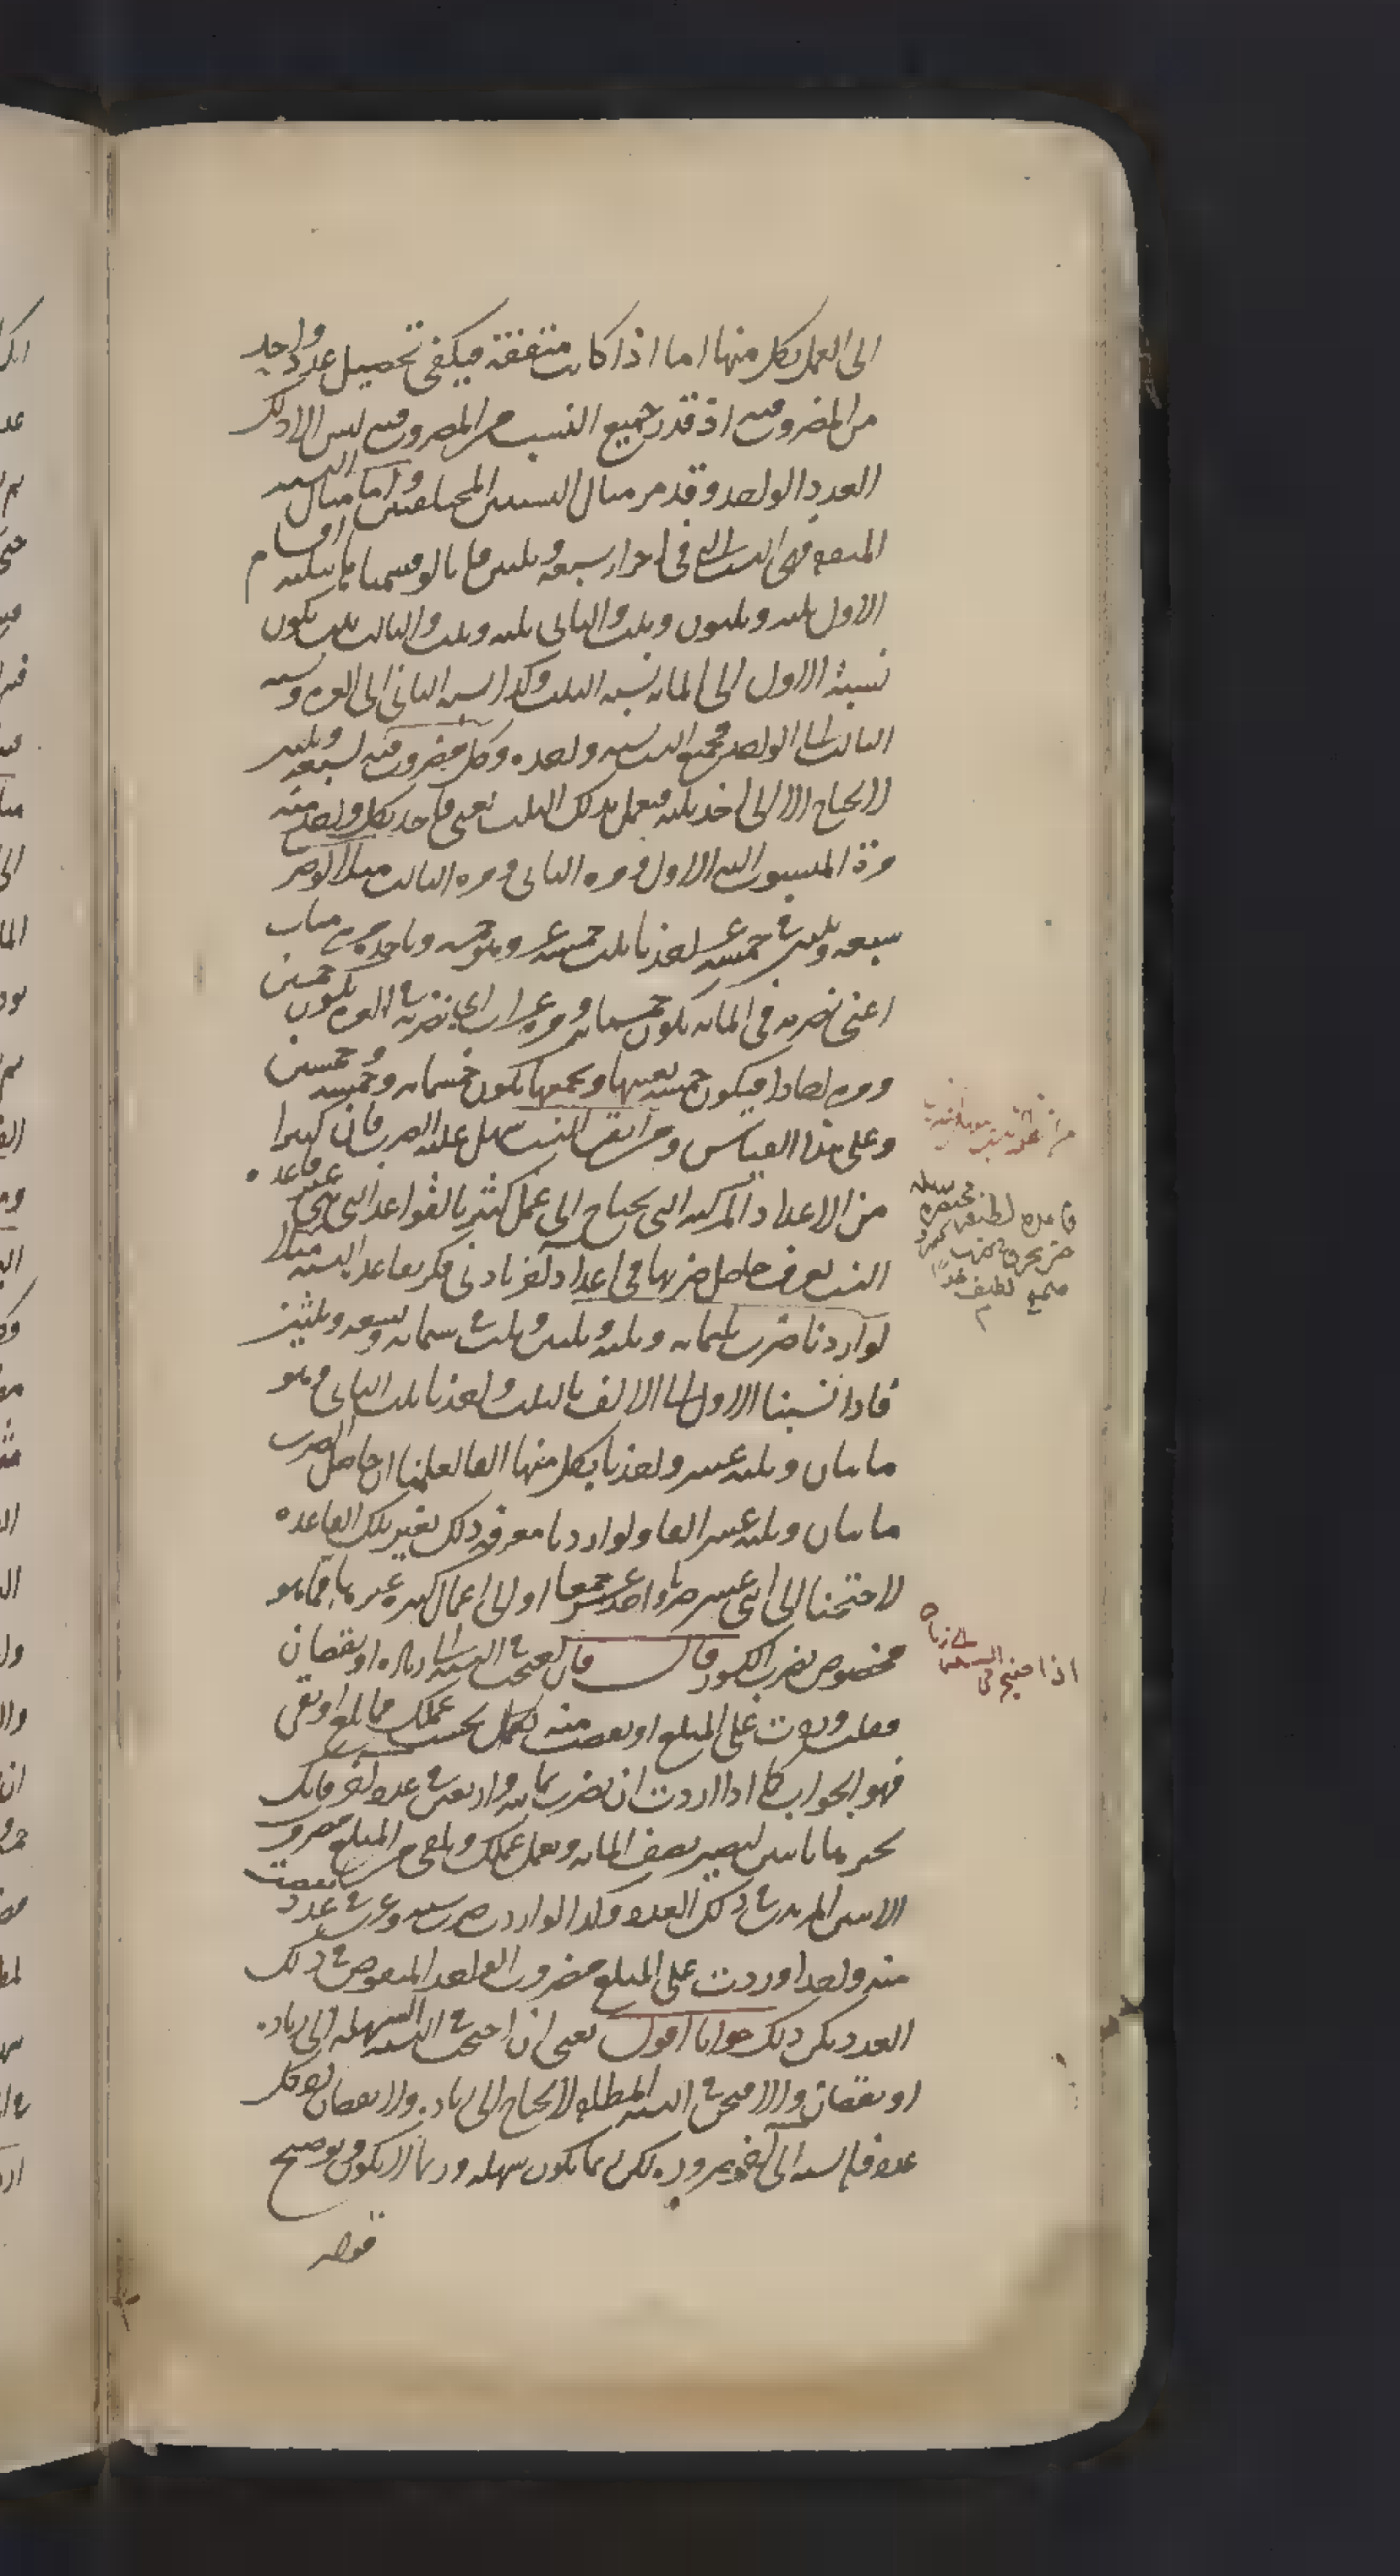 الى العمل بكل منها اما اذا كانت متفقة فيكفى تحصيل عدد واحد
من المضروب فيه اذ قدر جميع النسب من المضروب فيه ليس الا ذلك
العدد الواحد وقد مر مثال النسبتين المختلفتين واما مثال النسبة
المتفقة فهى النسب التى فى اجزاء سبعة وثلثين فانا لو قسمناها بثلثة اقسام
الاول ثلثة وثلثون وثلث والثانى ثلثة وثلث والثالث ثلث يكون
نسبة الاول الى المائة نسبة الثلث وكذا نسبة الثانى الى العشرة ونسبة
الثالث الى الواحد فجميع النسب نسبة واحدة وكل مضروب فيه لسبعة وثلثين
لا يحتاج الا الى اخذ ثلثه فيعمل بذلك الثلث يعنى فيؤخذ بكل واحد منه
مرة المنسوب اليه الاول ومرة الثانى ومرة الثالث مثلا لو ضرب
سبعة وثلثين فى خمسة عشر اخذنا ثلث خمسة عشر وهو خمسة وناخذه مرة مئات
اعنى نضربه فى المائة يكون خمسمائة ومرة عشرات اى نضربه فى العشرة يكون خمسين
ومرة احادا فيكون خمسة بعينها وجميعها يكون خمسمائة وخمسة وخمسين
وعلى هذا القياس ومن اتقن النسب سهل عليه الضرب فان كثيرا
من الاعداد المركبة التى يحتاج الى عمل كثير بالقواعد التى هى غير قاعدة
النسب يعرف حاصل ضربها فى اعداد اخر بادنى فكر بقاعدة النسبة مثلا
لو اردنا ضرب ثلثمائة وثلثة وثلثين وثلث فى ستمائة وتسعة وثلثين
فاذا نسبنا الاول الى الالف بالثلث واخذنا ثلث الثانى وهو
مائتان وثلثة عشر واخذنا بكل منها الفا لعلمنا ان حاصل الضرب
مائتان وثلثة عشر الفا ولو اردنا معرفة ذلك بغير تلك القاعدة
لاحتجنا الى اثنى عشر ضربا واحد عشر جمعا او الى اعمال كثيرة غيرها مما هو
مخصوص بضرب الكسور قال فان احتجت فى النسبة الى زيادة او نقصان
فعلت وزدت على المبلغ او نقصت منه لكمل بحسب عملك فما بلغ او بقى
فهو الجواب كما اذا اردت ان تضرب ثمانية واربعين فى عدد اخر فانك
تجبرها باثنين ليصير نصف المائة وتعمل عملك وتلقى من المبلغ مضروب
الاثنين المزيدين فى ذلك العدد وكذا لو اردت ضرب ستة وعشرين فى عدد نقصت
منه واحدا وزدت على المبلغ مضروب الواحد المنقوص فى ذلك
العدد يكن ذلك جوابا اقول يعنى ان احتجت فى النسبة السهلة الى زيادة
او نقصان والا فيحن فى النسبة المطلقة لا يحتاج الى زيادة ولا نقصان لان كل
عدد فله نسبة الى اخر ضرورة لكن ربما يكون سهلة وربما لا يكون وتوضيح
قوله
قاعدة لطيفة مختصرة سهلة
لطيف جدا
اذا احتيج فى النسبة الى زيادة